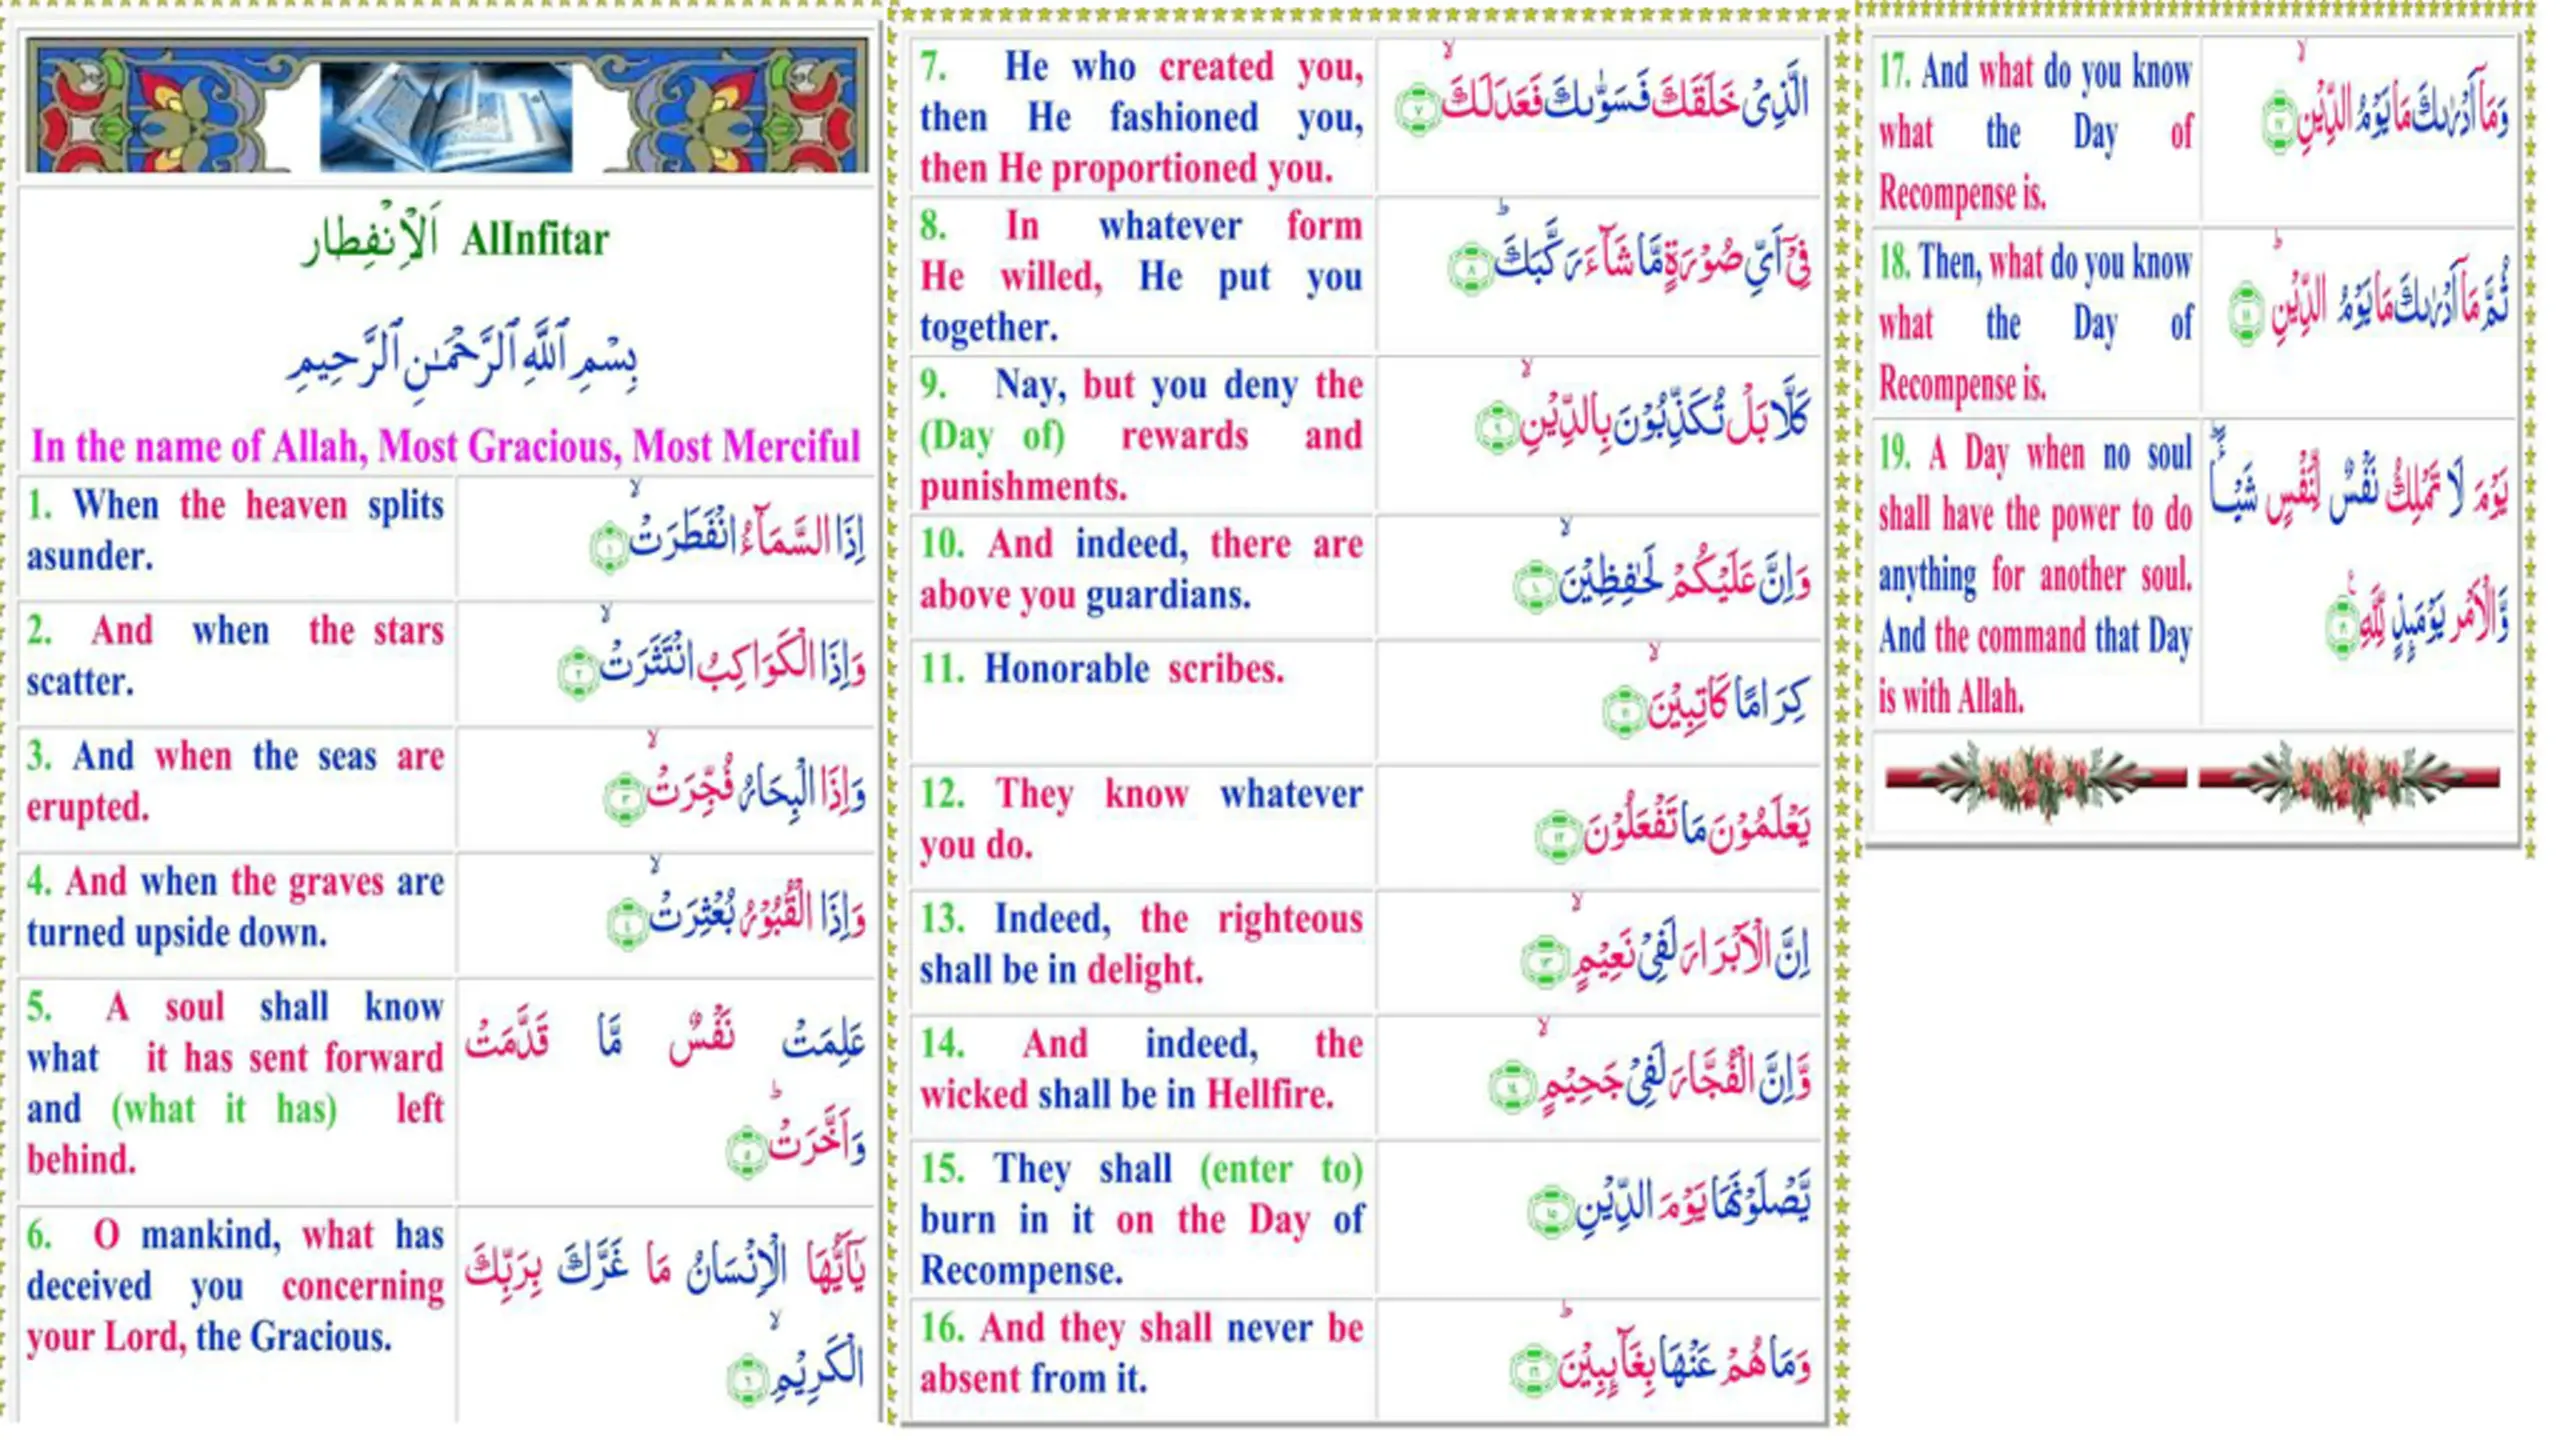 اَلْاِنْفِطار AlInfitar
بِسْمِ ٱللَّهِ ٱلرَّحْمَـٰنِ ٱلرَّحِيمِ
In the name of Allah, Most Gracious, Most Merciful
1. When the heaven splits
asunder.
اِذَا السَّمَآءُ انْفَطَرَتْۙ ﴿۱﴾
2. And when the stars
scatter.
وَاِذَا الْكَوَاكِبُ انْتَثَرَتْۙ ﴿۲﴾
3. And when the seas are
erupted.
وَاِذَا الْبِحَارُ فُجِّرَتْۙ ﴿۳﴾
4. And when the graves are
turned upside down.
وَاِذَا الْقُبُوْرُ بُعْثِرَتْۙ ﴿۴﴾
5. A soul shall know
what it has sent forward
and (what it has) left
behind.
عَلِمَتْ نَفْسٌ مَّا قَدَّمَتْ
وَاَخَّرَتْؕ ﴿۵﴾
6. O mankind, what has
deceived you concerning
your Lord, the Gracious.
يٰۤاَيُّهَا الْاِنْسَانُ مَا غَرَّكَ بِرَبِّكَ
الْكَرِيْمِۙ ﴿۶﴾
7. He who created you,
then He fashioned you,
then He proportioned you.
الَّذِىْ خَلَقَكَ فَسَوّٰٮكَ فَعَدَلَكَۙ ﴿۷﴾
8. In whatever form
He willed, He put you
together.
فِىْۤ اَىِّ صُوْرَةٍ مَّا شَآءَ رَكَّبَكَؕ ﴿۸﴾
9. Nay, but you deny the
(Day of) rewards and
punishments.
كَلَّا بَلْ تُكَذِّبُوْنَ بِالدِّيْنِۙ ﴿۹﴾
10. And indeed, there are
above you guardians.
وَاِنَّ عَلَيْكُمْ لَحٰفِظِيْنَۙ ﴿۱۰﴾
11. Honorable scribes.
كِرَامًا كَاتِبِيْنَۙ ﴿۱۱﴾
12. They know whatever
you do.
يَعْلَمُوْنَ مَا تَفْعَلُوْنَ ﴿۱۲﴾
13. Indeed, the righteous
shall be in delight.
اِنَّ الْاَبْرَارَ لَفِىْ نَعِيْمٍۙ ﴿۱۳﴾
14. And indeed, the
wicked shall be in Hellfire.
وَّاِنَّ الْفُجَّارَ لَفِىْ جَحِيْمٍۙ ﴿۱۴﴾
15. They shall (enter to)
burn in it on the Day of
Recompense.
يَّصْلَوْنَهَا يَوْمَ الدِّيْنِ ﴿۱۵﴾
16. And they shall never be
absent from it.
وَمَا هُمْ عَنْهَا بِغَآٮِٕبِيْنَؕ ﴿۱۶﴾
17. And what do you know
what the Day of
Recompense is.
وَمَاۤ اَدْرٰٮكَ مَا يَوْمُ الدِّيْنِۙ ﴿۱۷﴾
18. Then, what do you know
what the Day of
Recompense is.
ثُمَّ مَاۤ اَدْرٰٮكَ مَا يَوْمُ الدِّيْنِؕ ﴿۱۸﴾
19. A Day when no soul
shall have the power to do
anything for another soul.
And the command that Day
is with Allah.
يَوْمَ لَا تَمْلِكُ نَفْسٌ لِّنَفْسٍ شَيْـــًٔاؕ
وَّالْاَمْرُ يَوْمَٮِٕذٍ لِّلّٰهِ ﴿۱۹﴾